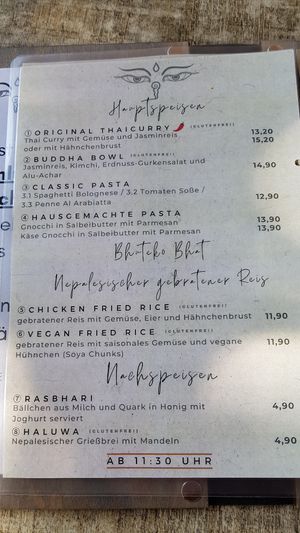 Hauptspeisen
① ORIGINAL THAICURRY (GLUTENFREI)
Thai Curry mit Gemüse und Jasminreis 13,20
oder mit Hähnchenbrust 15,20
② BUDDHA BOWL (GLUTENFREI)
Jasminreis, Kimchi, Erdnuss-Gurkensalat und 14,90
Alu-Achar
③ CLASSIC PASTA
3.1 Spaghetti Bolognese / 3.2 Tomaten Soße / 12,90
3.3 Penne Al Arabiatta
④ HAUSGEMACHTE PASTA
Gnocchi in Salbeibutter mit Parmesan 13,90
Käse Gnocchi in Salbeibutter mit Parmesan 13,90
Bhuteko Bhat
Nepalesischer gebratener Reis
⑤ CHICKEN FRIED RICE (GLUTENFREI)
gebratener Reis mit Gemüse, Eier und Hähnchenbrust 11,90
⑥ VEGAN FRIED RICE (GLUTENFREI)
gebratener Reis mit saisonales Gemüse und vegane 11,90
Hühnchen (Soya Chunks)
Nachspeisen
⑦ RASBHARI
Bällchen aus Milch und Quark in Honig mit 4,90
Joghurt serviert
⑧ HALUWA (GLUTENFREI)
Nepalesischer Grießbrei mit Mandeln 4,90
AB 11:30 UHR